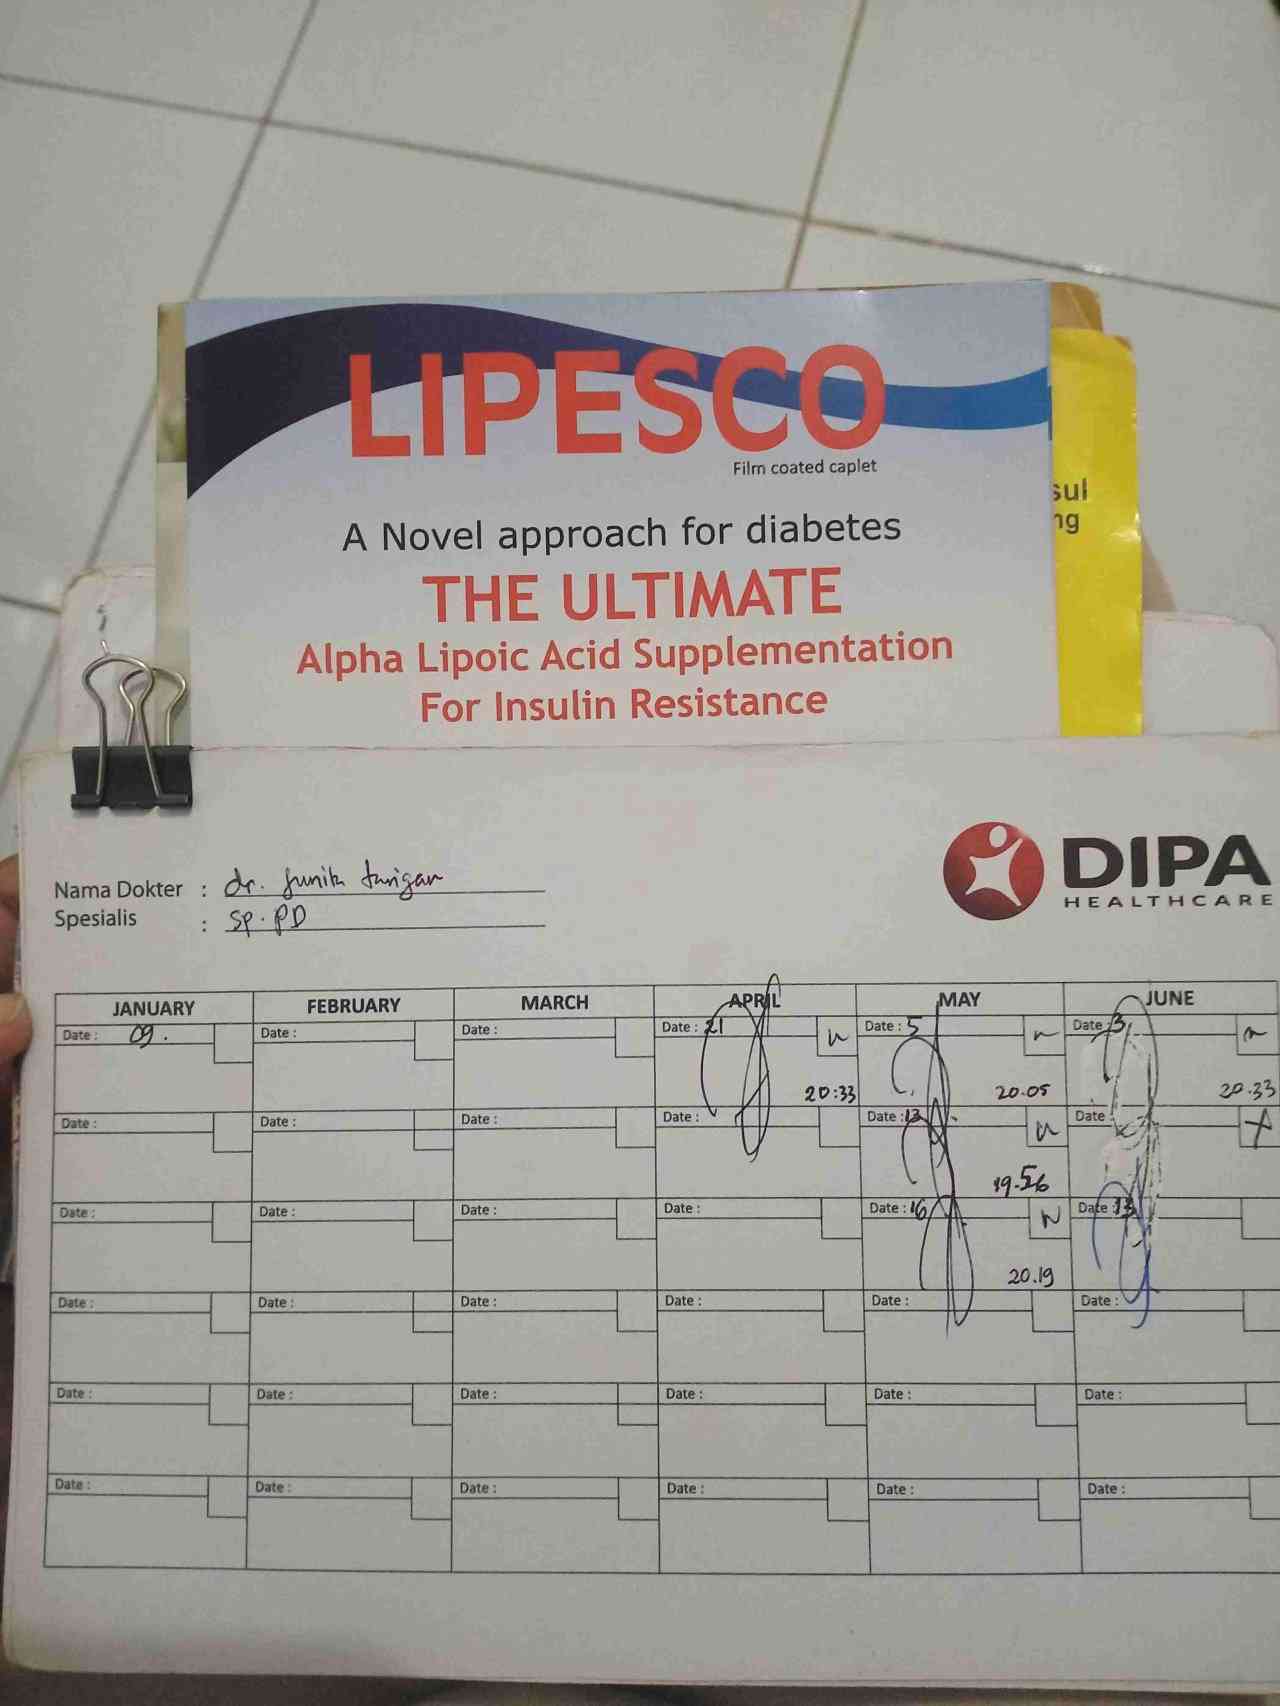 LIPESCO
Film coated caplet
A Novel approach for diabetes
THE ULTIMATE
Alpha Lipoic Acid Supplementation
For Insulin Resistance
sul
ng
DIPA
HEALTHCARE
Nama Dokter : dr. Junita tarigan
Spesialis : Sp.PD
JANUARY FEBRUARY MARCH APRIL MAY JUNE
Date : 09. Date : Date : Date : 21 Date : 5 Date : 3
20:33 20.05 20.33
Date : Date : Date : Date : Date : 13 Date
19.56
Date : Date : Date : Date : Date : 16 Date : 13
20.19
Date : Date : Date : Date : Date : Date :
Date : Date : Date : Date : Date : Date :
Date : Date : Date : Date : Date : Date :